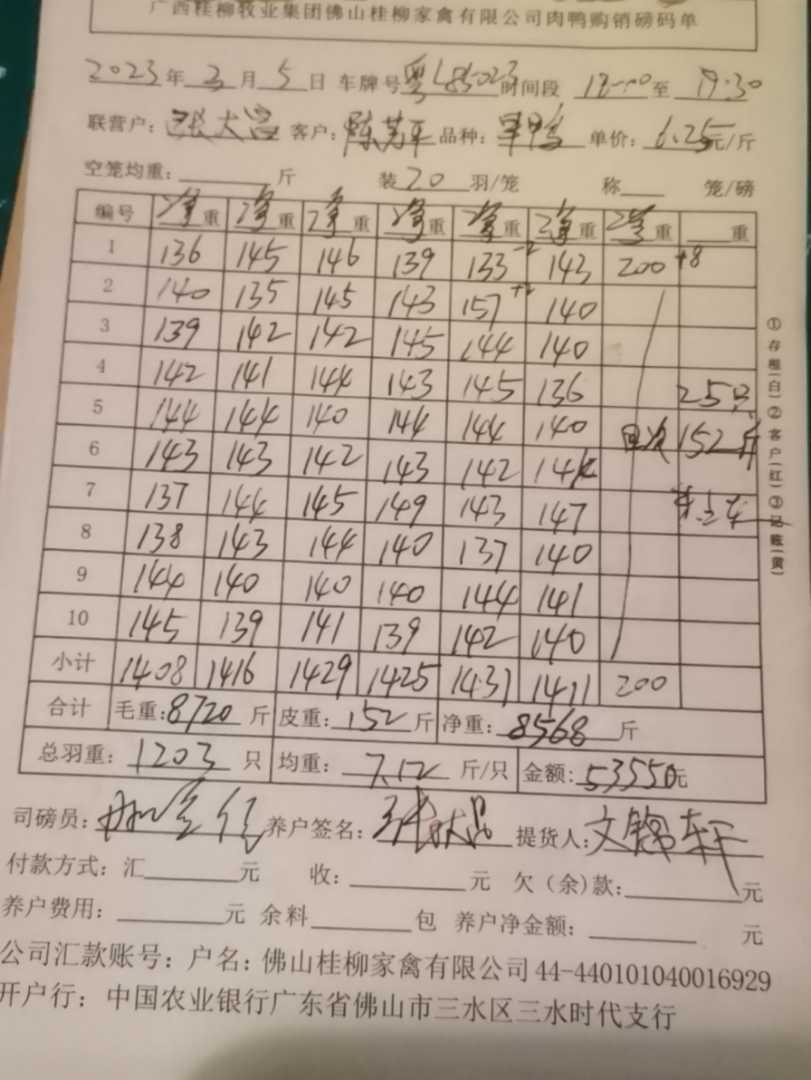 广西桂柳牧业集团佛山桂柳家禽有限公司肉鸭购销磅码单
2023年3月5日 车牌号粤L85023时间段 12:00至 19:30
联营户:张大昌 客户:陈芳平 品种: 单价:6.25元/斤
空笼均重: 斤 装20羽/笼 称 笼/磅
编号 净重 净重 净重 净重 净重 净重 净重 重
1 136 145 146 139 133-2 143 200 +8
2 140 135 145 143 157+2 140
3 139 142 142 145 144 140
4 142 141 144 143 145 136 25只
5 144 144 140 144 144 140 152斤
6 143 143 142 143 142 144
7 137 144 145 149 143 147
8 138 143 144 140 137 140
9 144 140 140 140 144 141
10 145 139 141 139 142 140
小计 1408 1416 1429 1425 1431 1411 200
合计 毛重:8720斤 皮重:152斤 净重:8568斤
总羽重:1203只 均重:7.12斤/只 金额:53550元
司磅员: 养户签名: 提货人:文锦轩
付款方式:汇 元 收: 元 欠(余)款: 元
养户费用: 元 余料 包 养户净金额: 元
公司汇款账号:户名:佛山桂柳家禽有限公司44-440101040016929
开户行:中国农业银行广东省佛山市三水区三水时代支行
①存根(白)②客户(红)③记账(黄)